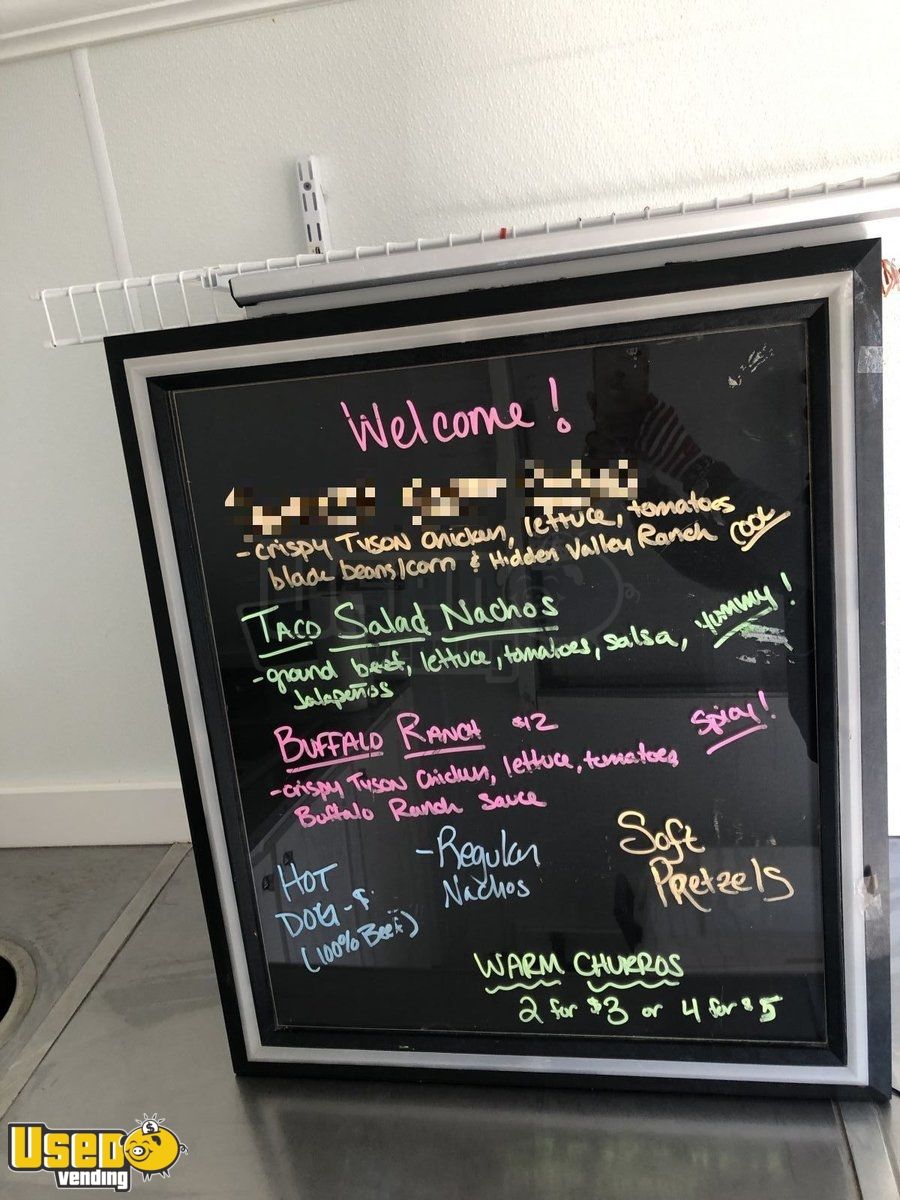 Welcome!
- crispy Tyson Chicken, lettuce, tomatoes
black beans/corn & Hidden Valley Ranch
COOL
TACO Salad Nachos
Yummy!
- ground beef, lettuce, tomatoes, salsa,
Jalapeños
BUFFALO RANCH $12
Spicy!
- crispy Tyson Chicken, lettuce, tomatoes
Buffalo Ranch Sauce
HOT
DOG - $
(100% Beef)
- Regular
Nachos
Soft
Pretzels
WARM CHURROS
2 for $3 or 4 for $5
USED
vending